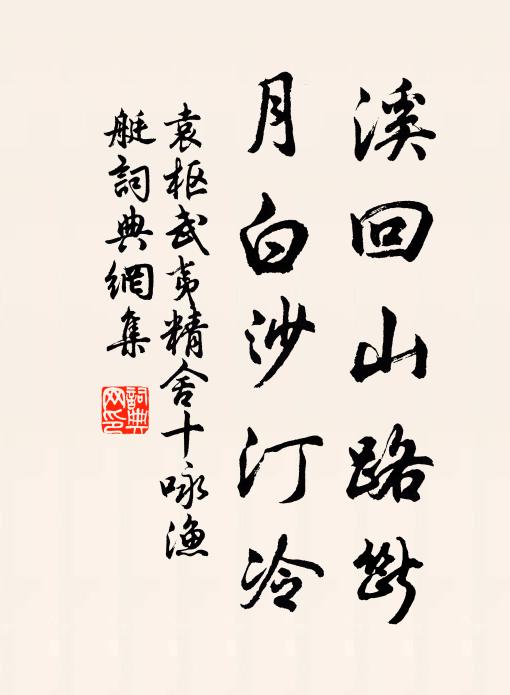 溪回山路斷
月白沙汀冷
袁枢武夷精舍十咏漁
艇詞典網集
詞典网印